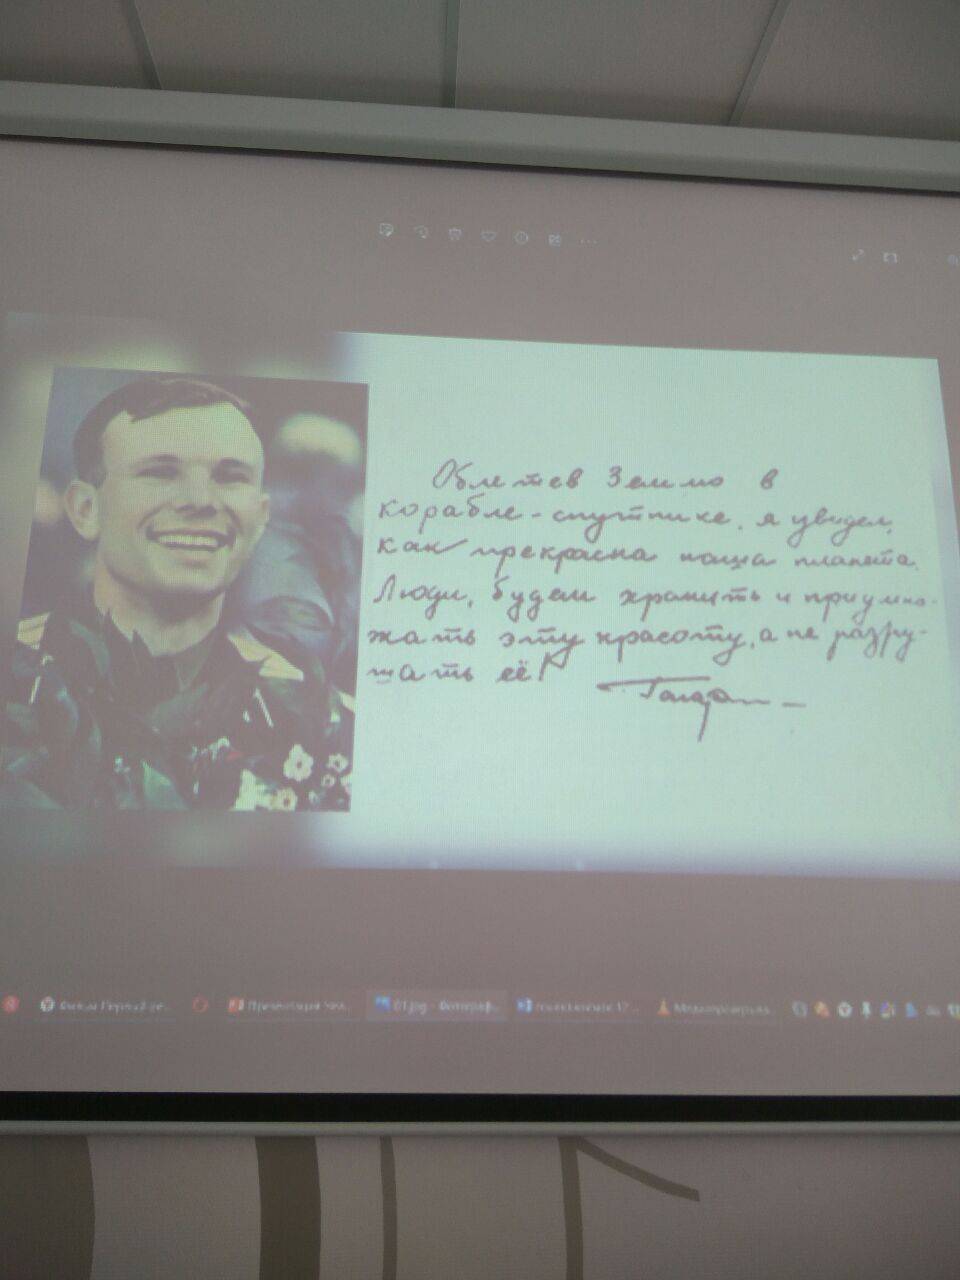 Облетев Землю в
корабле-спутнике, я увидел,
как прекрасна наша планета.
Люди, будем хранить и приумно-
жать эту красоту, а не разру-
шать её!
Гагарин
Презентация
01.jpg - Фотограф...